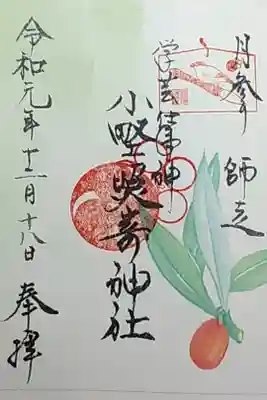 月参り 師走
学芸の神
小野照崎神社
令和元年十二月十八日
奉拝